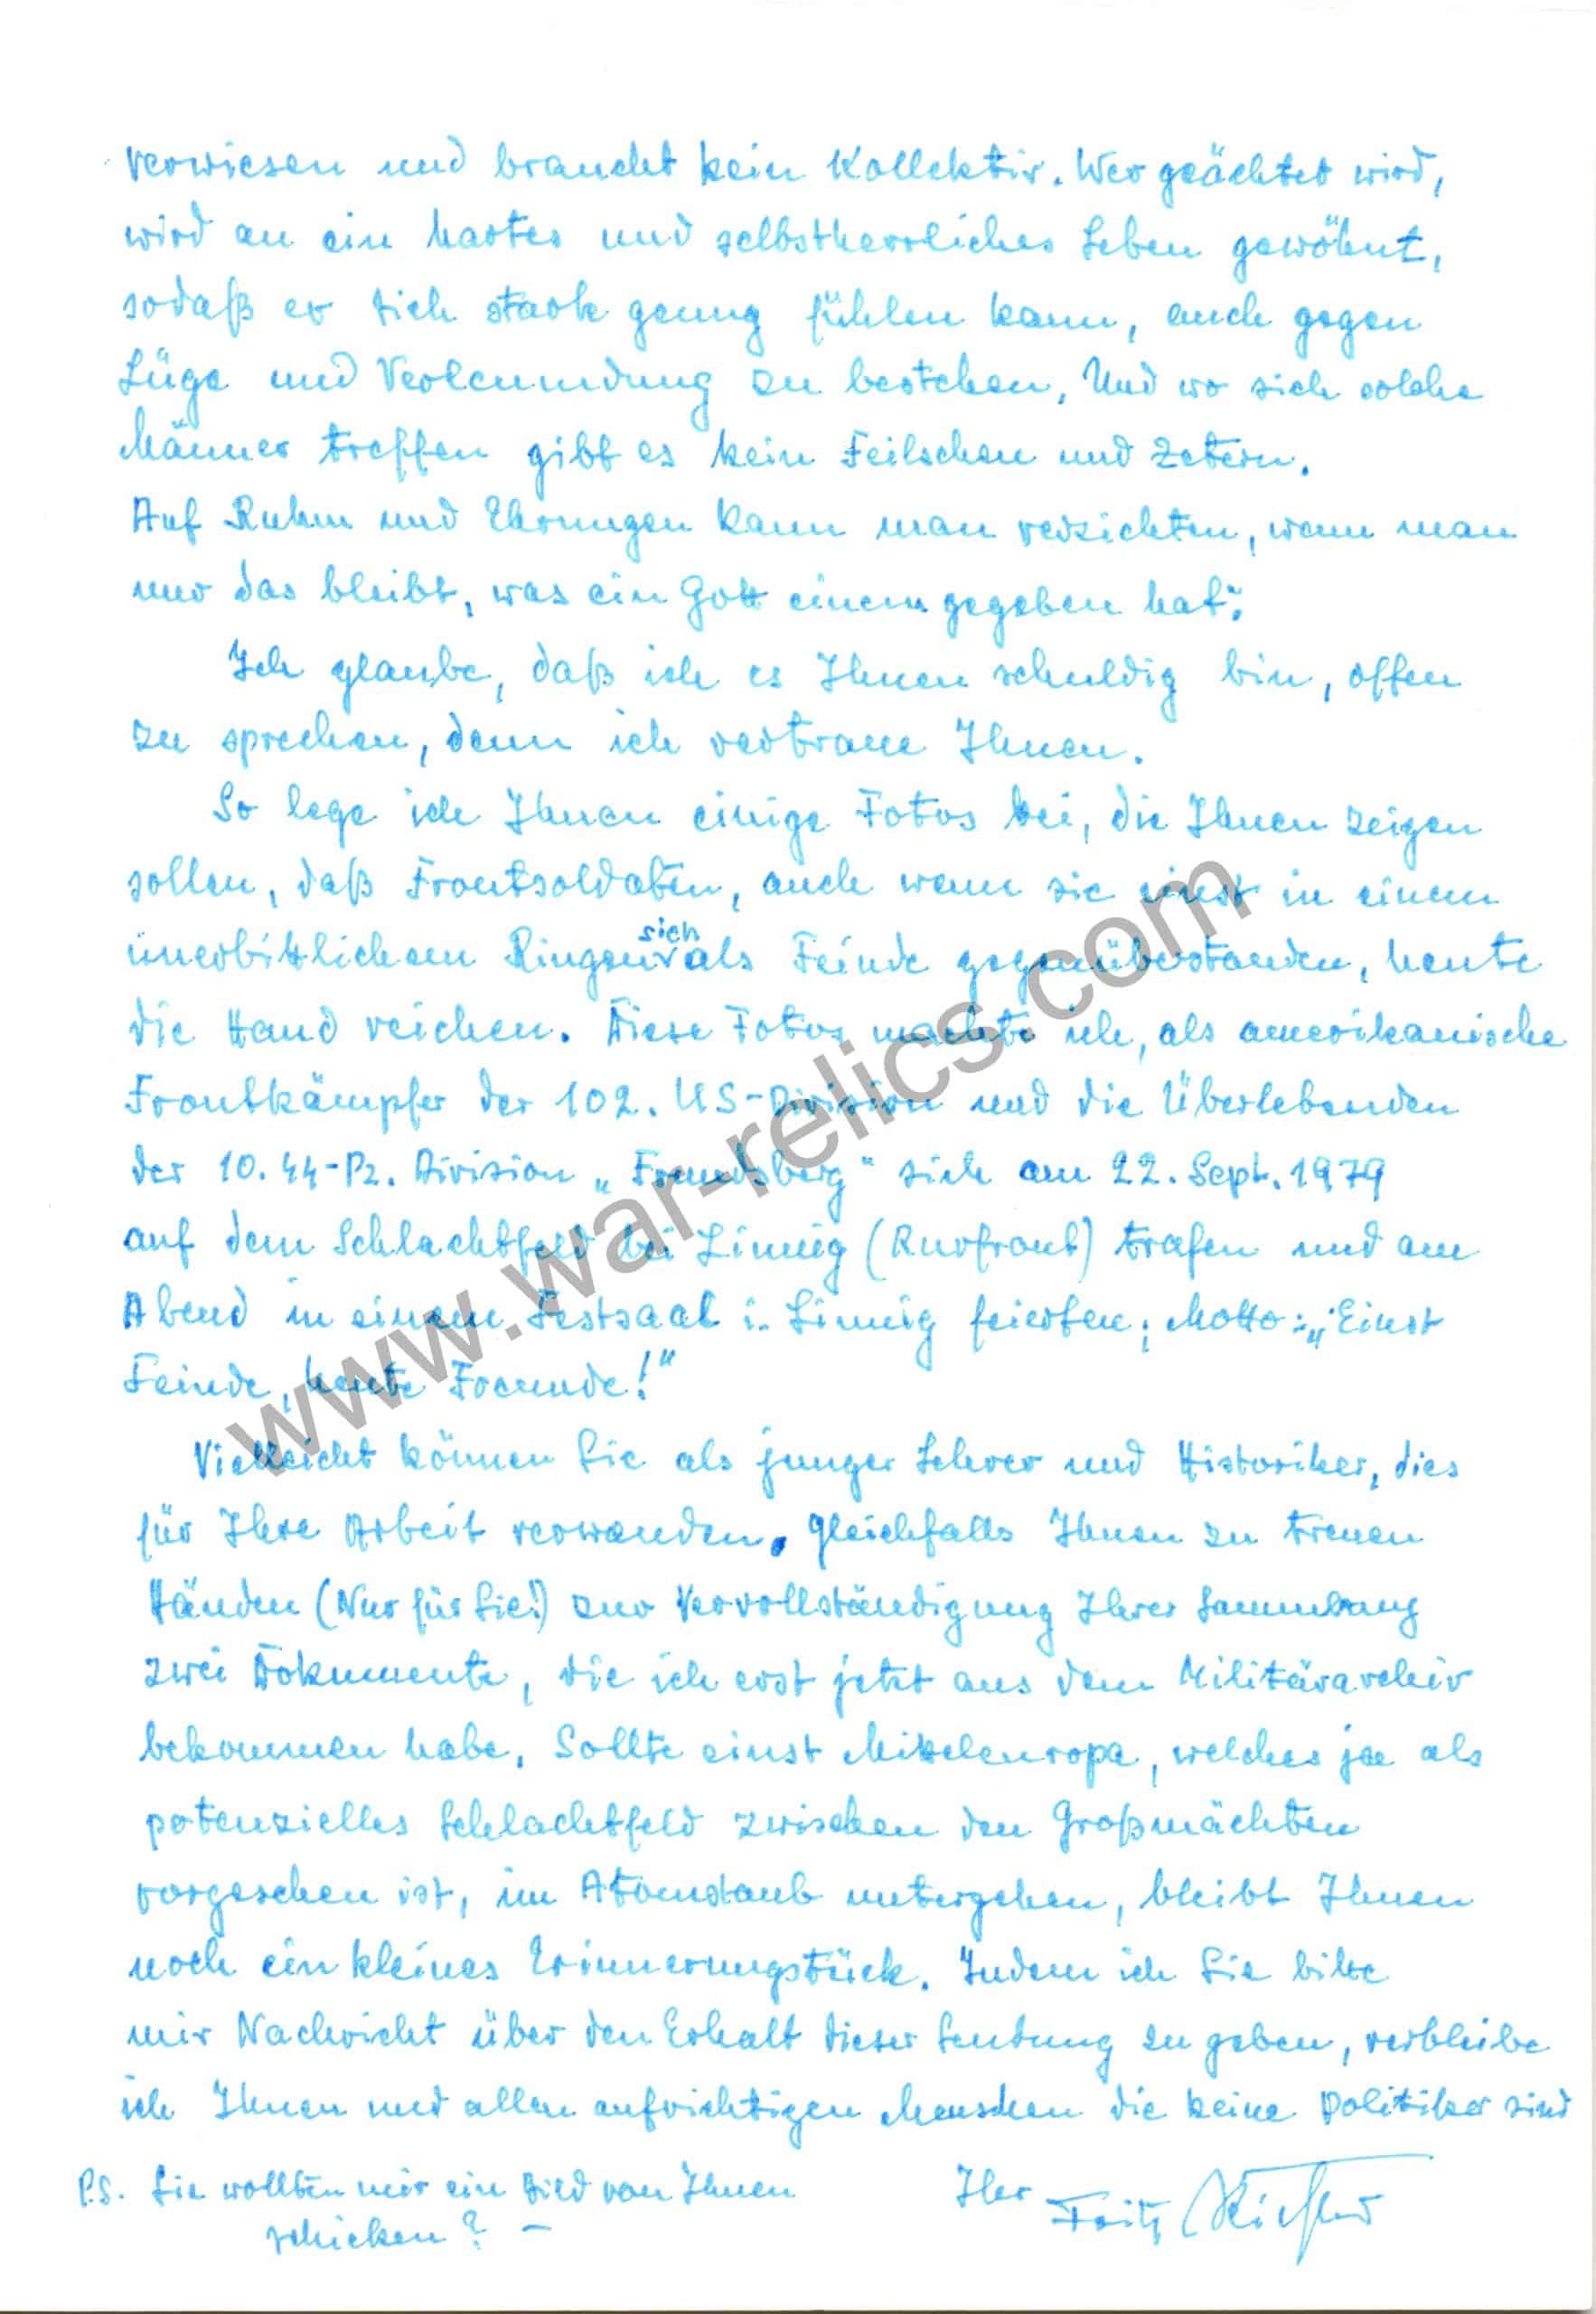 verwiesen und braucht kein Kollektiv. Wer geächtet wird,
wird an ein hartes und selbstherrliches Leben gewöhnt,
sodaß er sich stark genug fühlen kann, auch gegen
Lüge und Verleumdung zu bestehen. Und wo sich solche
Männer treffen gibt es kein Feilschen und Zetern.
Auf Ruhm und Ehrungen kann man verzichten, wenn man
nur das bleibt, was ein Gott einem gegeben hat".
Ich glaube, daß ich es Ihnen schuldig bin, offen
zu sprechen, denn ich vertraue Ihnen.
So lege ich Ihnen einige Fotos bei, die Ihnen zeigen
sollen, daß Frontsoldaten, auch wenn sie einst in einem
unerbittlichem Ringen sich als Feinde gegenüberstanden, heute
die Hand reichen. Diese Fotos machte ich, als amerikanische
Frontkämpfer der 102. US-Division und die Überlebenden
der 10. SS-Pz. Division „Frundsberg" sich am 22. Sept. 1979
auf dem Schlachtfeld bei Linnig (Rurfront) trafen und am
Abend in einem Festsaal i. Linnig feierten; Motto: „Einst
Feinde, heute Freunde!"
Vielleicht können Sie als junger Lehrer und Historiker, dies
für Ihre Arbeit verwenden. Gleichfalls Ihnen zu treuen
Händen (Nur für Sie!) zur Vervollständigung Ihrer Sammlung
zwei Dokumente, die ich erst jetzt aus dem Militärarchiv
bekommen habe. Sollte einst Mitteleuropa, welches ja als
potenzielles Schlachtfeld zwischen den Großmächten
vorgesehen ist, im Atomstaub untergehen, bleibt Ihnen
noch ein kleines Erinnerungstück. Indem ich Sie bitte
mir Nachricht über den Erhalt dieser Sendung zu geben, verbleibe
ich Ihnen und allen aufrichtigen Menschen die keine Politiker sind
Ihr Fritz
P.S. Sie wollten mir ein Bild von Ihnen
schicken? –
www.war-relics.com